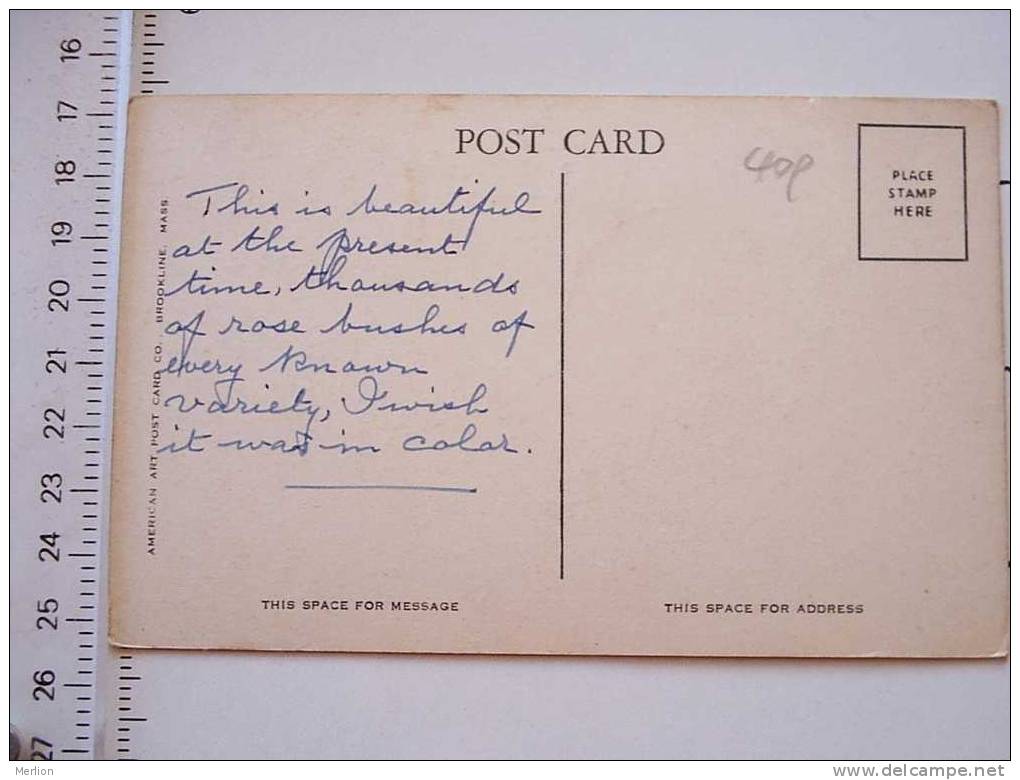 16
17
18
19
20
21
22
23
24
25
26
27
POST CARD
PLACE
STAMP
HERE
AMERICAN ART POST CARD CO., BROOKLINE, MASS.
This is beautiful
at the present
time, thousands
of rose bushes of
every known
variety, I wish
it was in color.
THIS SPACE FOR MESSAGE
THIS SPACE FOR ADDRESS
Merlion
delcampe.net